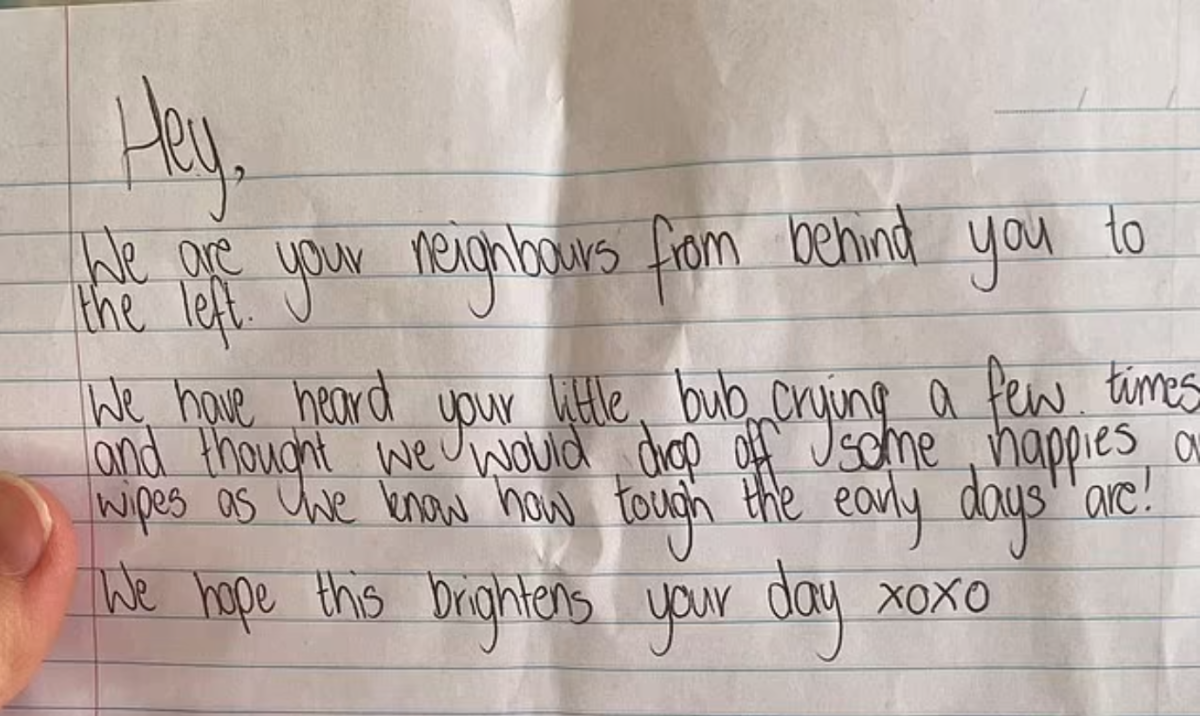 Hey,
We are your neighbours from behind you to
the left.
We have heard your little bub crying a few times
and thought we would drop off some nappies
wipes as we know how tough the early days are!
We hope this brightens your day xoxo